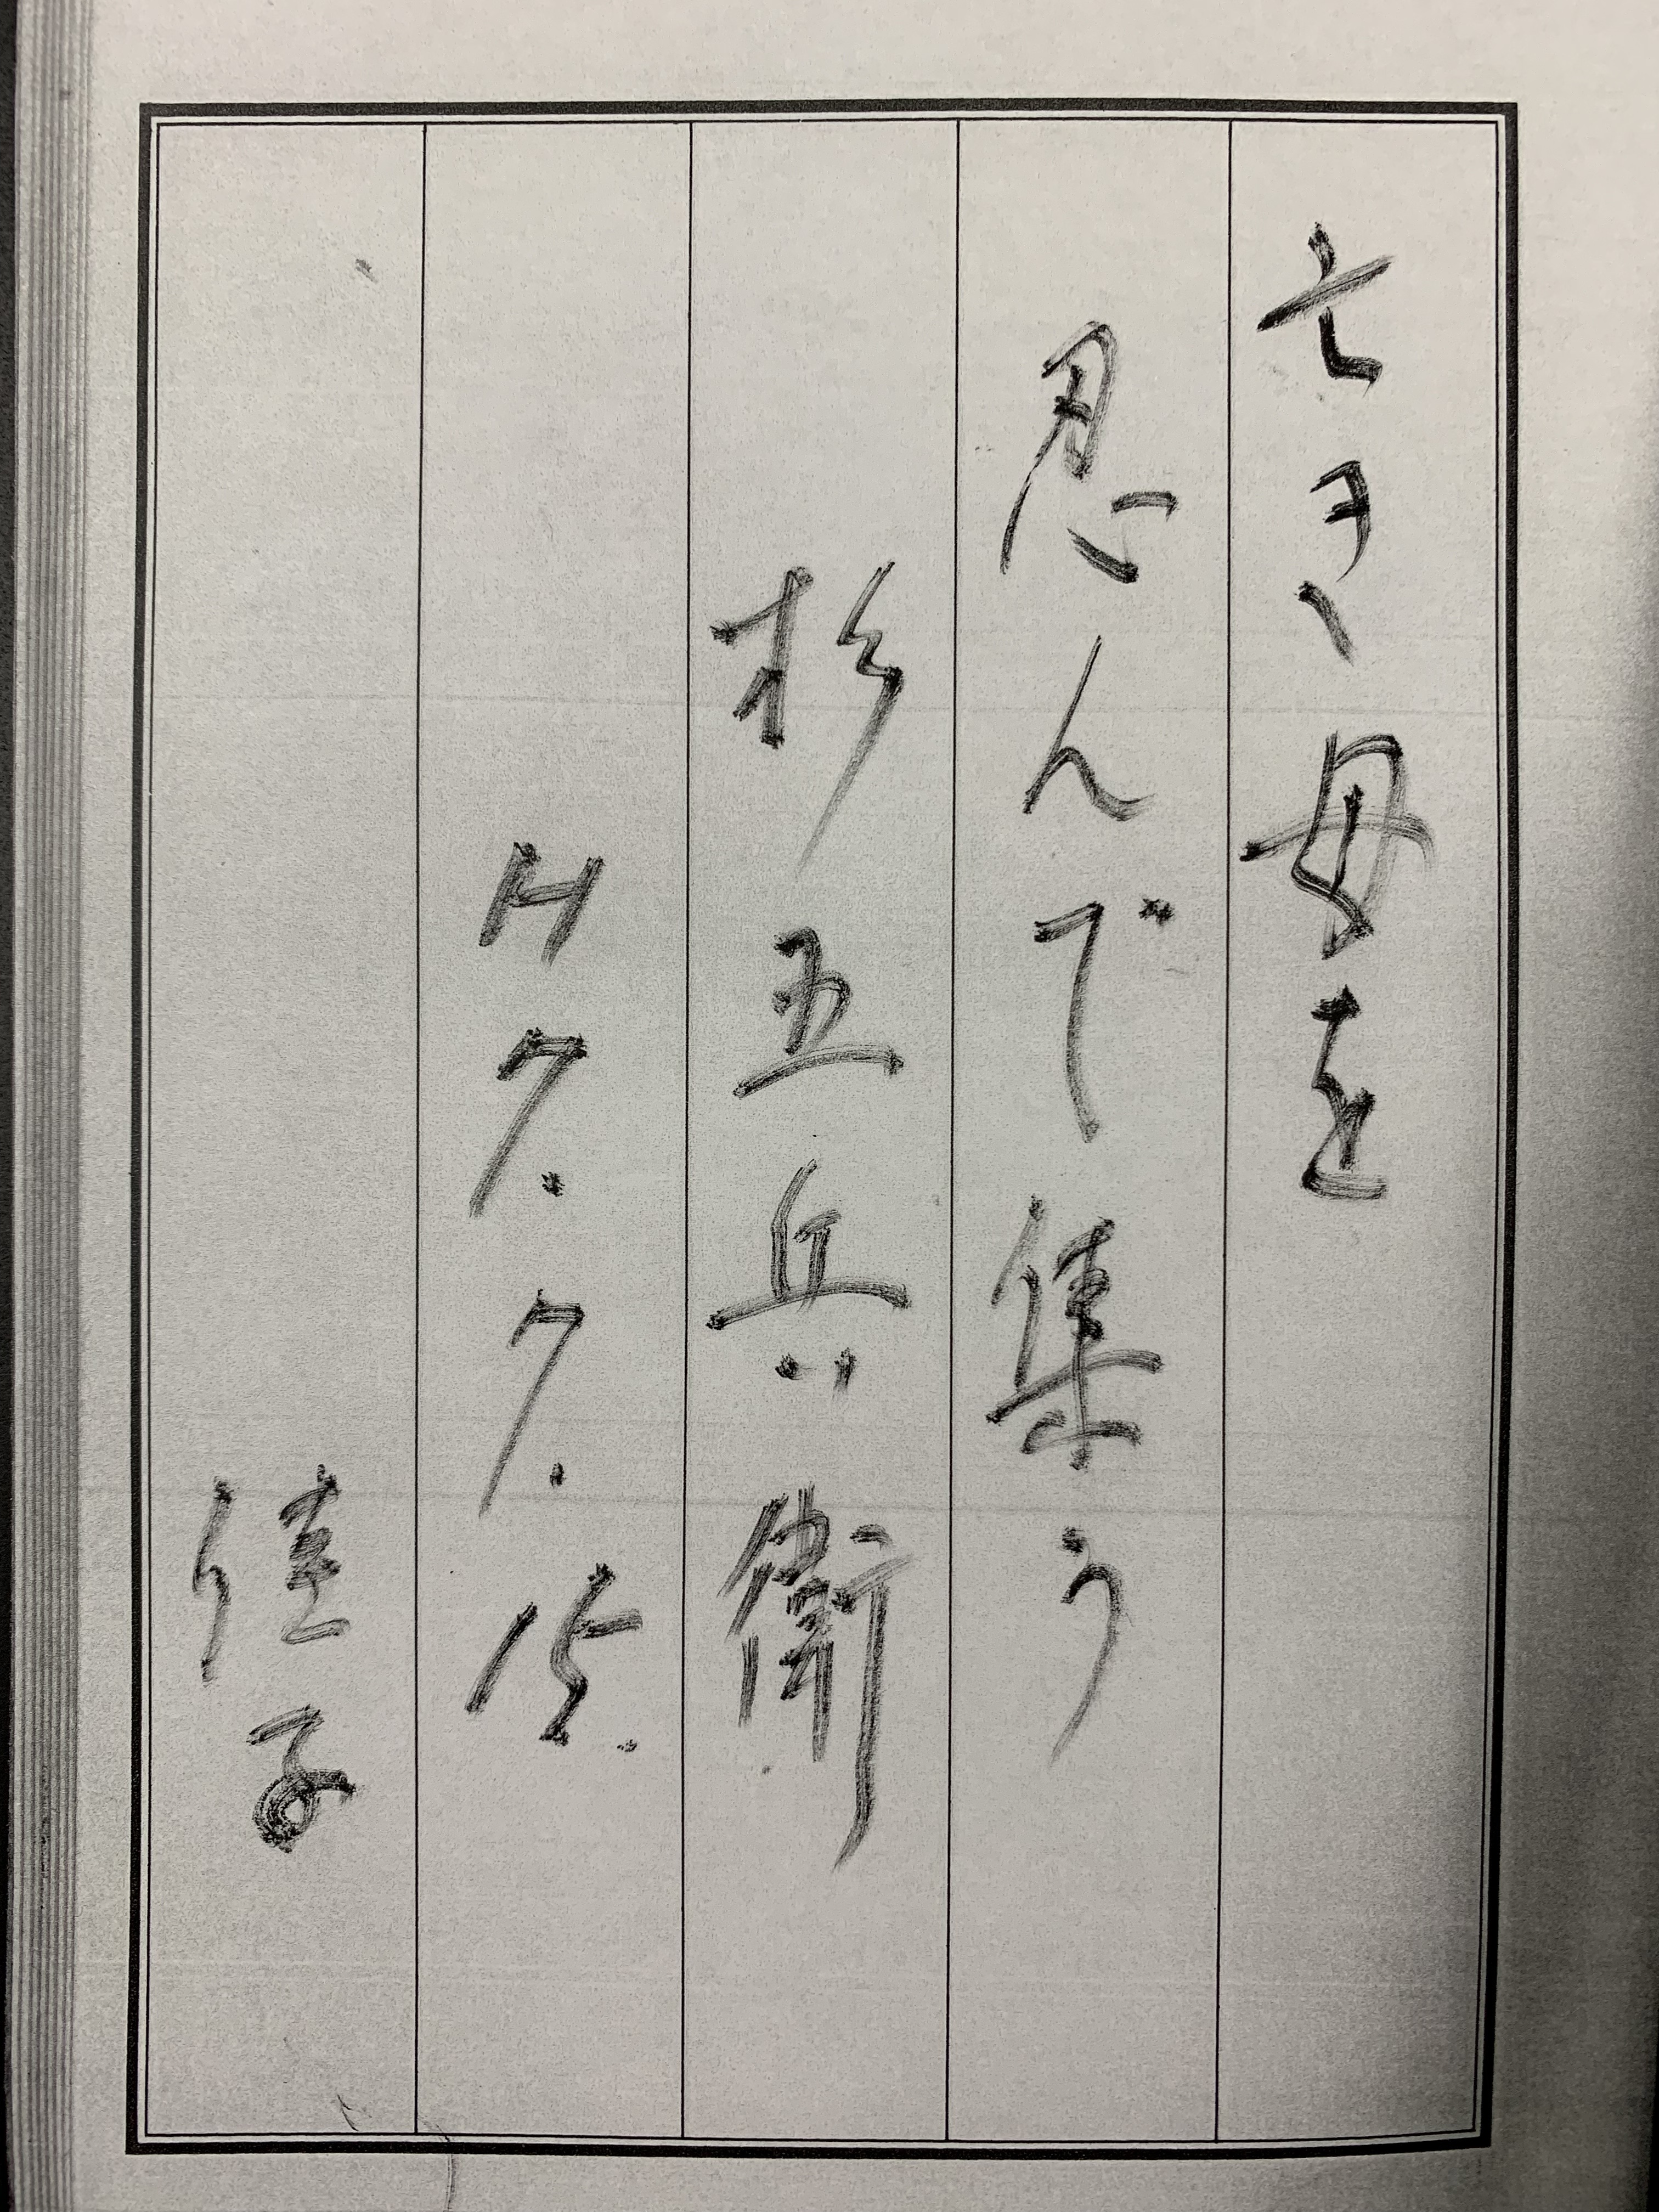 亡き母を
忍んで集う
杉五兵衛
H7.7.15.
佳子